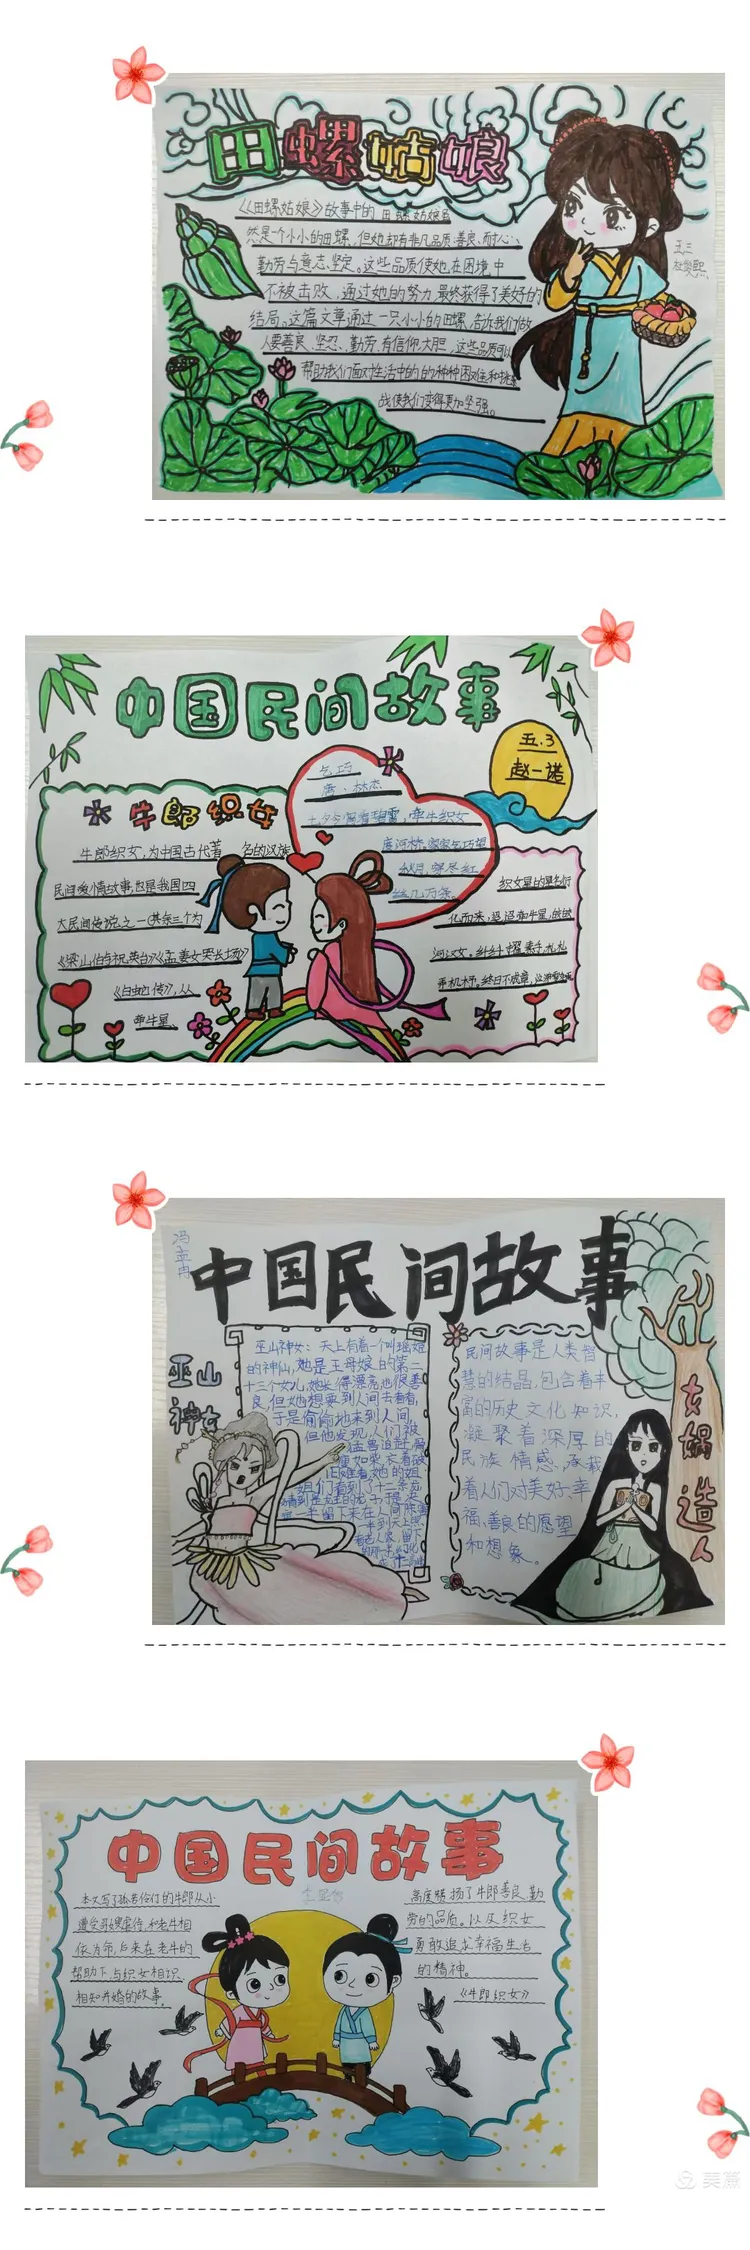 田螺姑娘
《田螺姑娘》故事中的田螺姑娘虽
然是一个小小的田螺,但她却有非凡品质:善良、耐心、
勤劳与意志坚定。这些品质使她在困境中
不被击败,通过她的努力最终获得了美好的
结局。这篇文章通过一只小小的田螺,告诉我们做
人要善良、坚忍、勤劳、有信仰、大胆,这些品质可以
帮助我们面对生活中的的种种困难和挑
战使我们变得更加坚强。
五三
中国民间故事
五.3
赵一诺
牛郎织女
牛郎织女,为中国古代著名的汉族
民间爱情故事,也是我国四
大民间传说之一(其余三个为
《梁山伯与祝英台》《孟姜女哭长城》
《白蛇传》),从
牵牛星、
乞巧
唐·林杰
七夕今宵看碧霄,牵牛织女
渡河桥。家家乞巧望
秋月,穿尽红
丝几万条。
织女星的星名衍
化而来,迢迢牵牛星,皎皎
河汉女。纤纤擢素手,札札
弄机杼。终日不成章,泣涕零如雨
中国民间故事
巫山
神女
巫山神女:天上有着一个叫瑶姬
的神仙,她是王母娘的第二
十三个女儿,她长得漂亮也很善
良,但她想要到人间去看看,
于是偷偷地来到人间,
但他发现,人们被
猛兽追赶,骨
瘦如柴,衣着破
旧,随着她的姐
姐们看到了十二条恶
民间故事是人类智
慧的结晶,包含着丰
富的历史文化知识,
凝聚着深厚的
民族情感,承载
着人们对美好、幸
福、善良的愿望
和想象。
女娲造人
中国民间故事
本文写了孤苦伶仃的牛郎从小
遭受哥嫂虐待,和老牛相
依为命,后来在老牛的
帮助下,与织女相识
相知并婚的故事。
高度赞扬了牛郎善良、勤
劳的品质。以及织女
勇敢追求幸福生活
的精神。
《牛郎织女》
美篇